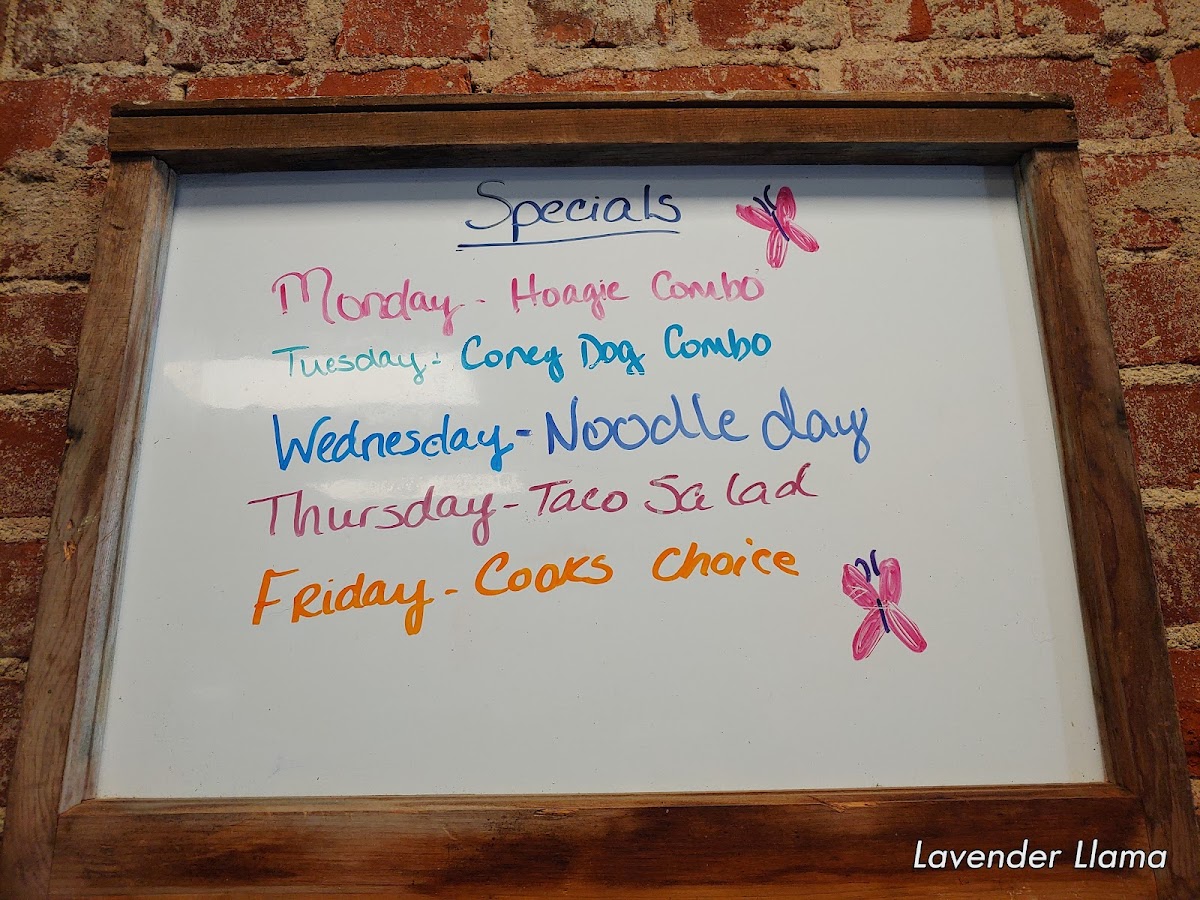 Specials
Monday - Hoagie Combo
Tuesday - Coney Dog Combo
Wednesday - Noodle day
Thursday - Taco Salad
Friday - Cooks choice
Lavender Llama